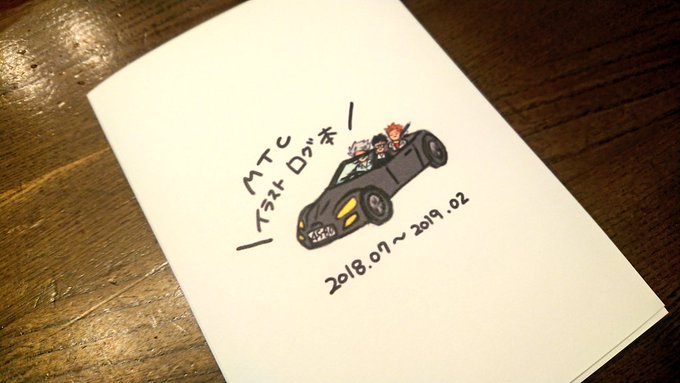 MTC
イラスト ログ本
2018.07～2019.02